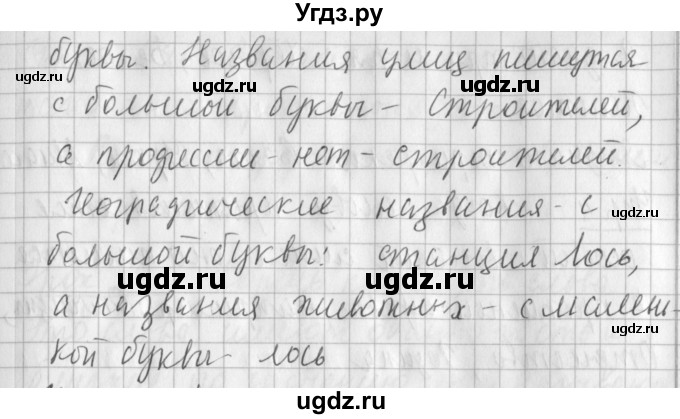 Угдз.ру
буквы. Названия улиц пишутся
с большой буквы - Строителей,
а профессии - нет - строителей.
Географические названия - с
большой буквы: станция Лось,
а названия животных - с малень-
кой буквы - лось
ugdz.ru
ugdz.ru
ugdz.ru
ugdz.ru
ugdz.ru
ugdz.ru
ugdz.ru
ugdz.ru
ugdz.ru
ugdz.ru
ugdz.ru